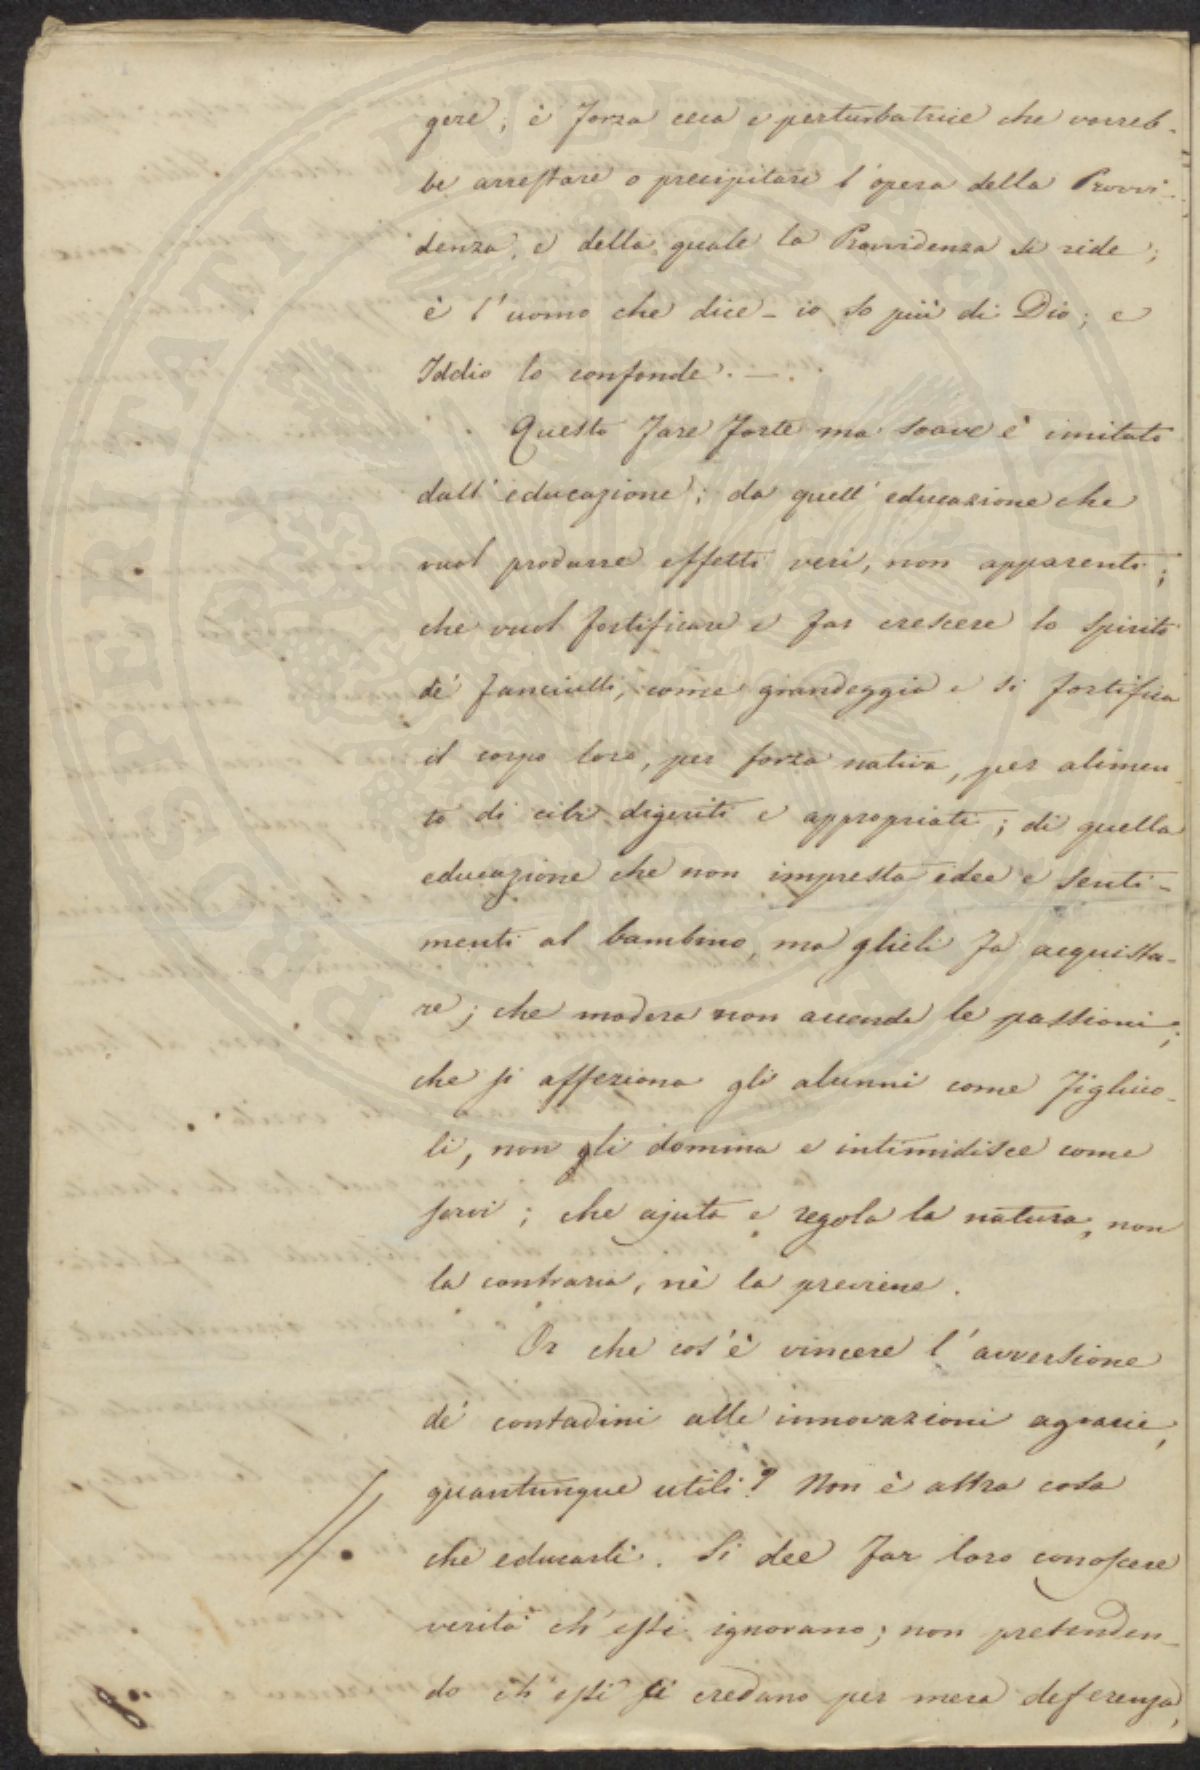 gere; è forza ceca e perturbatrice che vorreb-
be arrestare o precipitare l'opera della Provvi-
denza, e della quale la Provvidenza si ride;
è l'uomo che dice - io so più di Dio; e
Iddio lo confonde. -
Questo fare forte ma soave è imitato
dall'educazione; da quell'educazione che
vuol produrre effetti veri, non apparenti;
che vuol fortificare e far crescere lo spirito
de' fanciulli, come grandeggia e si fortifica
il corpo loro, per forza nativa, per alimen-
to di cibi digeriti e appropriati; di quella
educazione che non impresta idee e senti-
menti al bambino, ma glieli fa acquista-
re; che modera non accende le passioni;
che si affeziona gli alunni come figliuo-
li, non gli domina e intimidisce come
servi; che ajuta e regola la natura, non
la contraria, nè la previene.
Or che cos'è vincere l'avversione
de' contadini alle innovazioni agrarie,
quantunque utili? Non è altra cosa
che educarli. Si dee far loro conoscere
verità ch'essi ignorano; non pretenden-
do ch'essi ci credano per mera deferenza,
PROSPERITATI PVBLICAE AVGENDAE